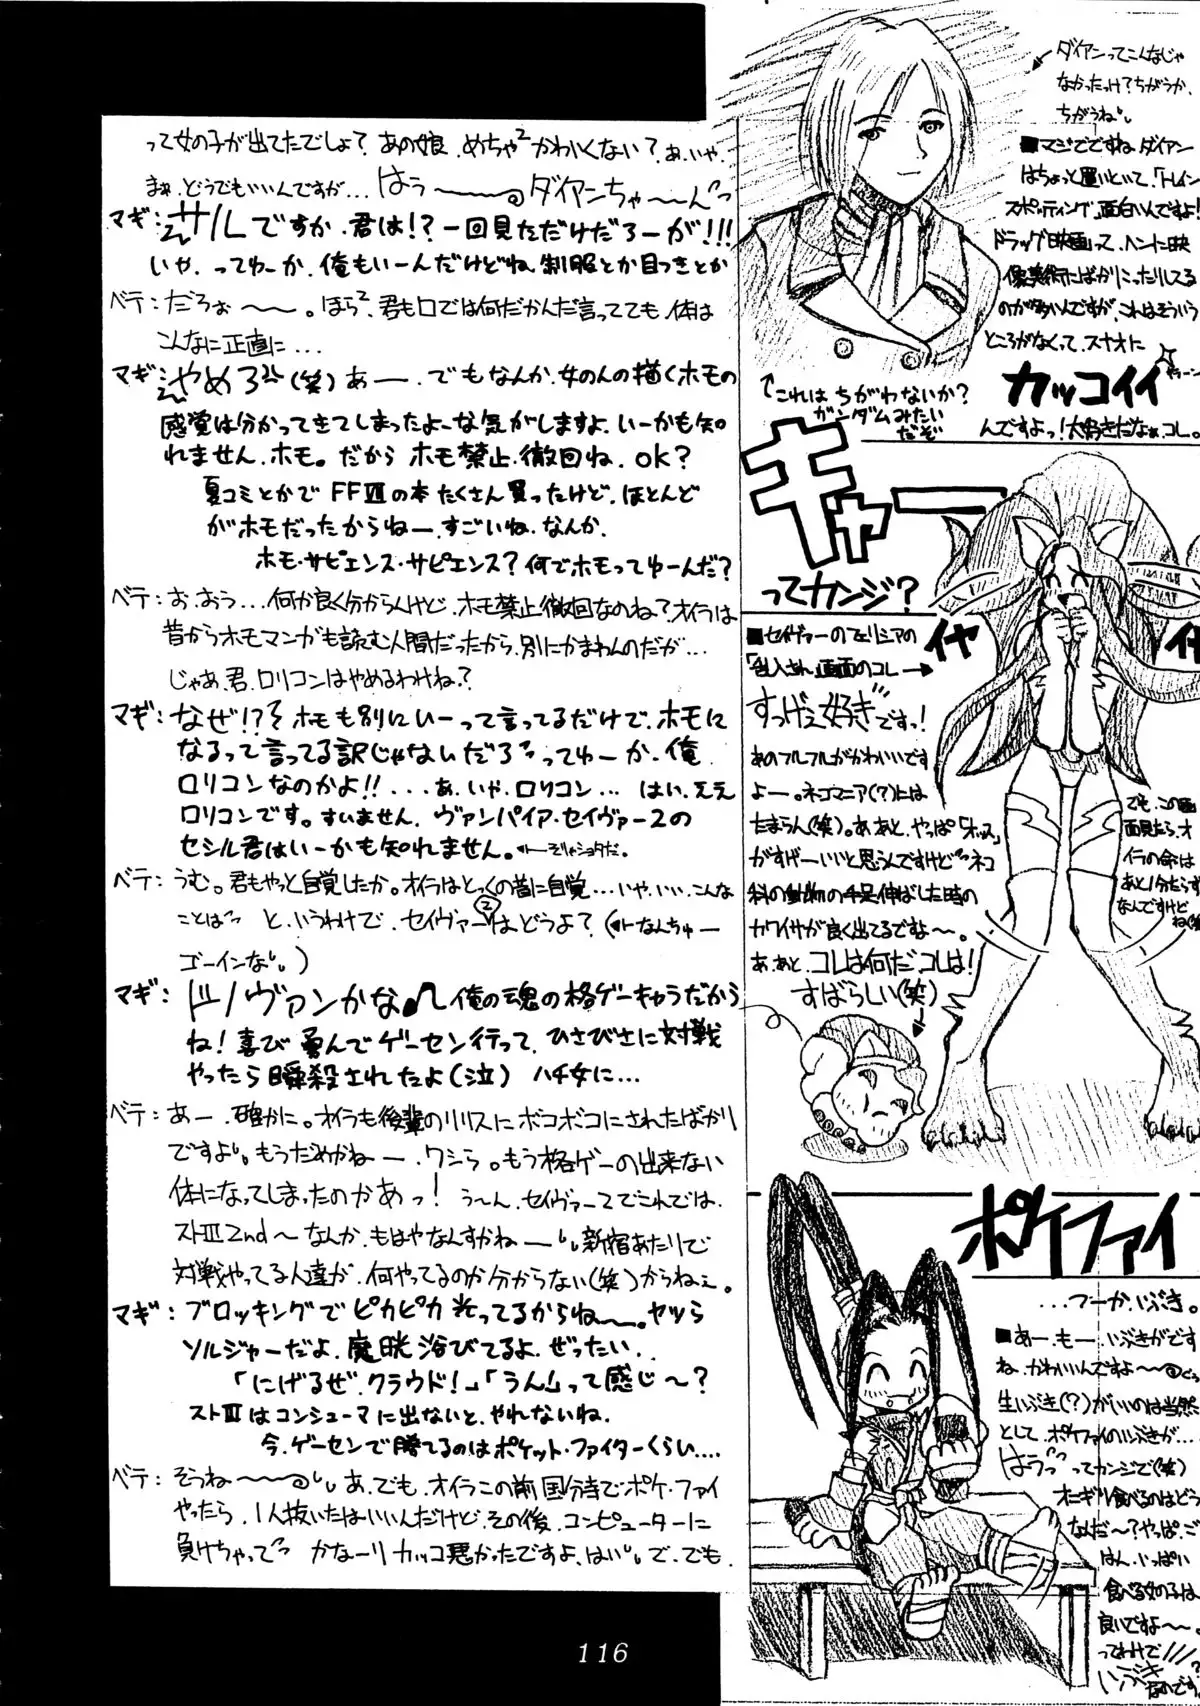 って女の子が出てたでしょ？あの娘、めちゃ²かわいくない？あ、いや、
まぁ、どうでもいいんですが…はぅ〜〜〜ダイアンちゃ〜〜んっ
マギ：サルですか、君は!？一回見ただけだろーが!!!
いや、ってゆーか、俺もいーんだけどね、制服とか目つきとか
ベテ：だろぉ〜〜。ほら²、君も口では何だかんだ言ってても、体は
こんなに正直に…
マギ：やめろ(笑)あー、でもなんか、女のんの描くホモの
感覚は分かってきてしまったよーな気がしますよ、いーかも知
れません、ホモ。だから ホモ禁止、撤回ね。ok？
夏コミとかで FFⅦの本たくさん買ったけど、ほとんど
がホモだったからねー、すごいね、なんか、
ホモ・サピエンス・サピエンス？何でホモってゆーんだ？
ベテ：お、おぅ…何か良く分からんけど、ホモ禁止撤回なのね？オイラは
昔からホモマンガも読む人間だったから、別にかまわんのだが…
じゃあ、君、ロリコンはやめるわけね？
マギ：なぜ!？ホモも別にいーって言ってるだけで、ホモに
なるって言ってる訳じゃないだろっってゆーか、俺
ロリコンなのかよ!!...あ、いや、ロリコン… はい、ええ
ロリコンです。すいません、ヴァンパイア・セイヴァー2の
セシル君はいーかも知れません。←そりゃショタだ。
ベテ：うむ。君もやっと自覚したか。オイラはとっくの昔に自覚…いや、いい、こんな
ことはっ と、いうわけで、セイヴァー②はどうよ？(←なんちゅー
ゴーインな、)
マギ：ドノヴァンかな♪俺の魂の格ゲーキャラだから
ね！喜び勇んでゲーセン行って、ひさびさに対戦
やったら瞬殺されたよ(泣) ハチ女に…
ベテ：あー、確かに。オイラも後輩のリリスにボコボコにされたばかり
ですよ。もうだめかねー、ワシら。もう格ゲーの出来ない
体になってしまったのかあっ！ う〜ん、セイヴァー2でこれでは、
ストⅢ2nd〜なんか、もはやなんすかねー、新宿あたりで
対戦やってる人達が、何やってるのか分からない(笑)からねぇ。
マギ：ブロッキングでピカピカ光ってるからね〜。ヤツら
ソルジャーだよ、魔晄浴びてるよ、ぜったい、
「にげるぜ、クラウド！」「うん」って感じ〜？
ストⅢはコンシューマに出ないと、やれないね、
今、ゲーセンで勝てるのはポケット・ファイターくらい....
ベテ：そうね〜〜〜、あ、でも、オイラこの前国分寺でポケ・ファイ
やったら、1人抜いたはいいんだけど、その後、コンピューターに
負けちゃってっ かな〜りカッコ悪かったですよ、はい、で、でも、
ダイアンってこんなじゃ
なかったっけ？ちがうか、
ちがうね、
■マジでですね、ダイアン
はちょっと置いといて、「トレイン
スポッティング」面白いんですよ！
ドラッグ映画って、ヘンに映
像美術にばかりこったりしてる
のが多いんですが、これはそういう
ところがなくって、スナオに
カッコイイ
んですよっ！大好きだなぁ、コレ。
これは ちがわないか？
ガンダムみたい
だぞ
キャー
ってカンジ？
イヤ
イヤ
■セイヴァーのフェリシアの
「乱入され」画面のコレ→
すっげぇ好きですっ！
あのフルフルがかわいいです
よー。ネコマニア(？)には
たまらん(笑)。あ、あと、やっぱ「ホッス」
がすげーいいと思うんですけどっネコ
科の動物の手足伸ばした時の
カワイサが良く出てるですよ〜。
あ、あと、コレは何だ、コレは！
すばらしい(笑)
でも、この画
面見たら、オ
イラの命は
あと1分たらず
なんですけど
ね(笑
ポケファイ
…つーか、いぶき。
■あー、もー、いぶきがです
ね、かわいいんですよ〜〜
生いぶき(？)がいいのは当然
として、ポケファイのいぶきが…
はぅっってカンジで(笑)
オニギリ食べるのはどう
なんだ〜？やっぱ、ご
はん、いっぱい
食べる女の子は
良いですよ〜。
ってわけで///
いぶき
116